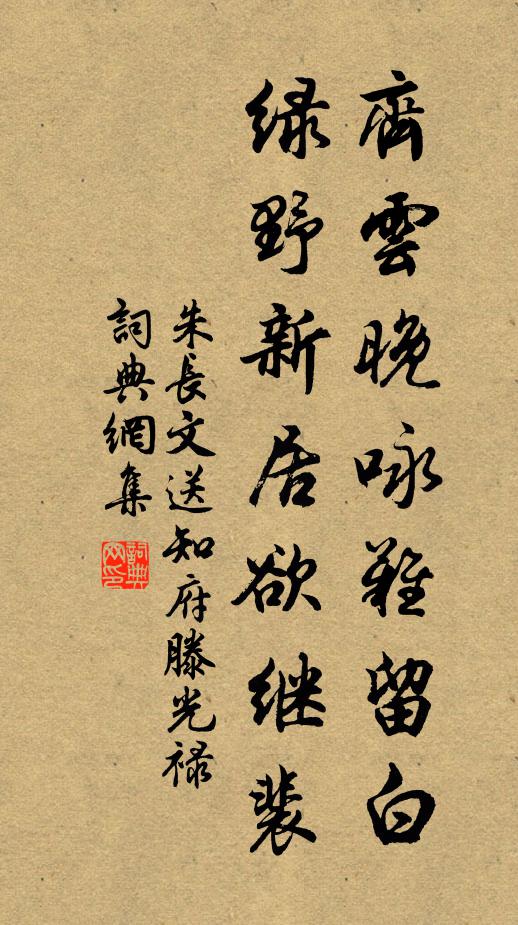 齊雲晚咏難留白
绿野新居欲继裴
朱長文送知府滕光禄
詞典網集
詞典网印